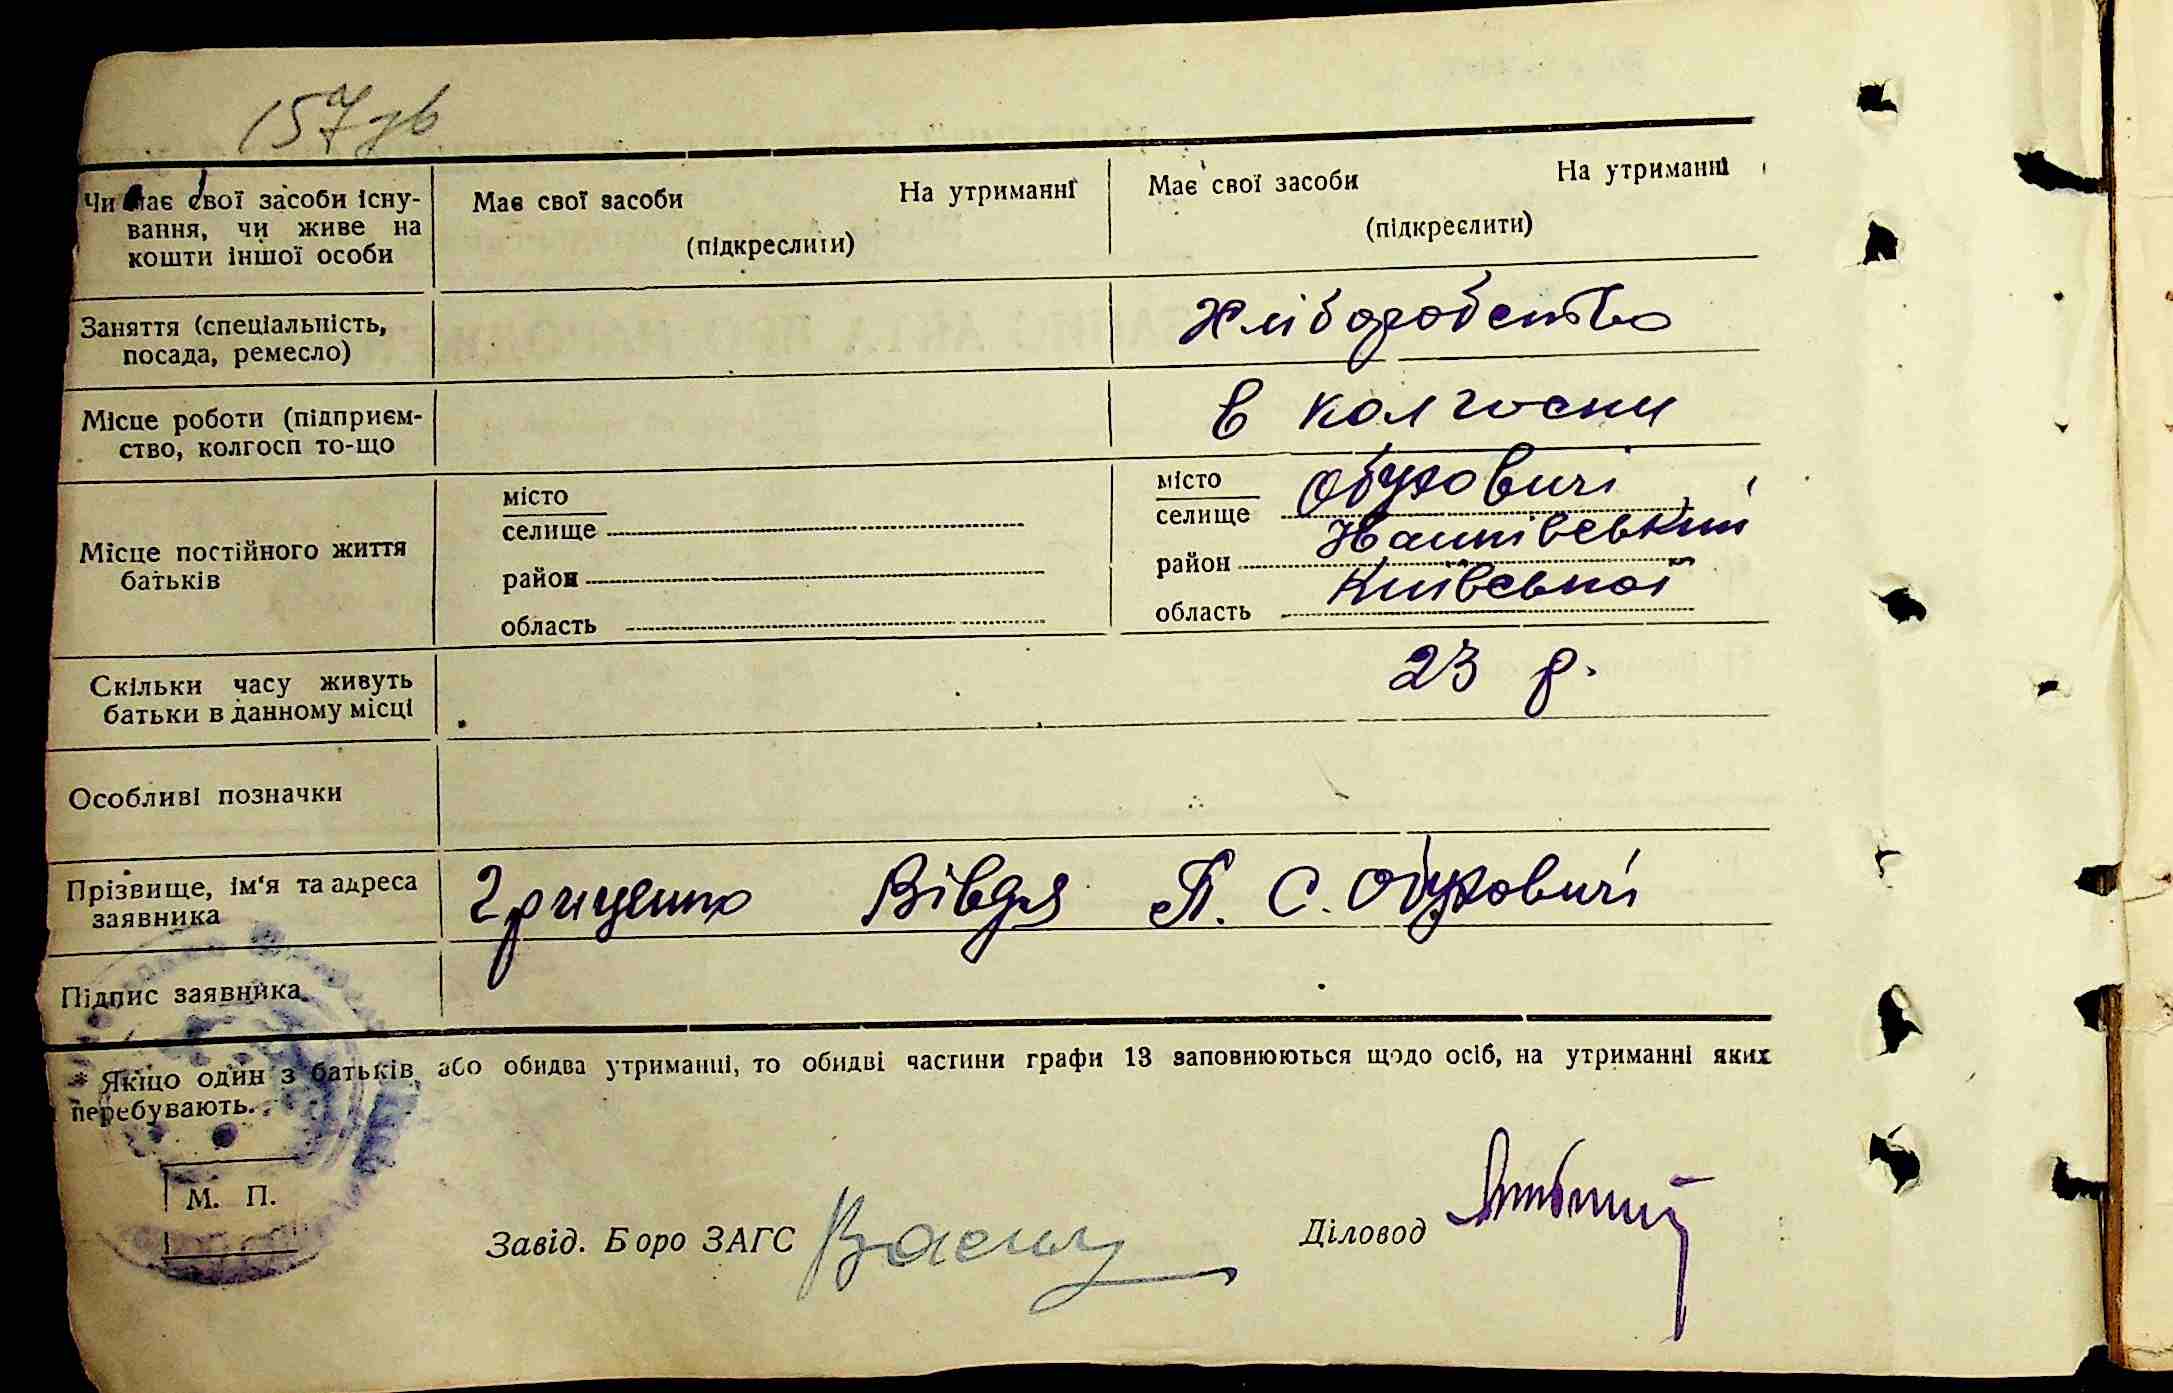 157 зв
Чи має свої засоби існу-
вання, чи живе на
кошти іншої особи
Має свої засоби На утриманні
(підкреслити)
Має свої засоби На утриманні
(підкреслити)
Заняття (спеціальність,
посада, ремесло)
Хліборобство
Місце роботи (підприєм-
ство, колгосп то-що
в колгоспи
Місце постійного життя
батьків
місто
селище
район
область
місто
селище Обуховичі
район
область Київської
Скільки часу живуть
батьки в данному місці
23 р.
Особливі позначки
Прізвище, ім'я та адреса
заявника
Грищенко Вівдя П. С. Обуховичі
Підпис заявника
* Якщо один з батьків, або обидва утриманці, то обидві частини графи 13 заповнюються щодо осіб, на утриманні яких
перебувають.
М. П.
Завід. Боро ЗАГС
Діловод